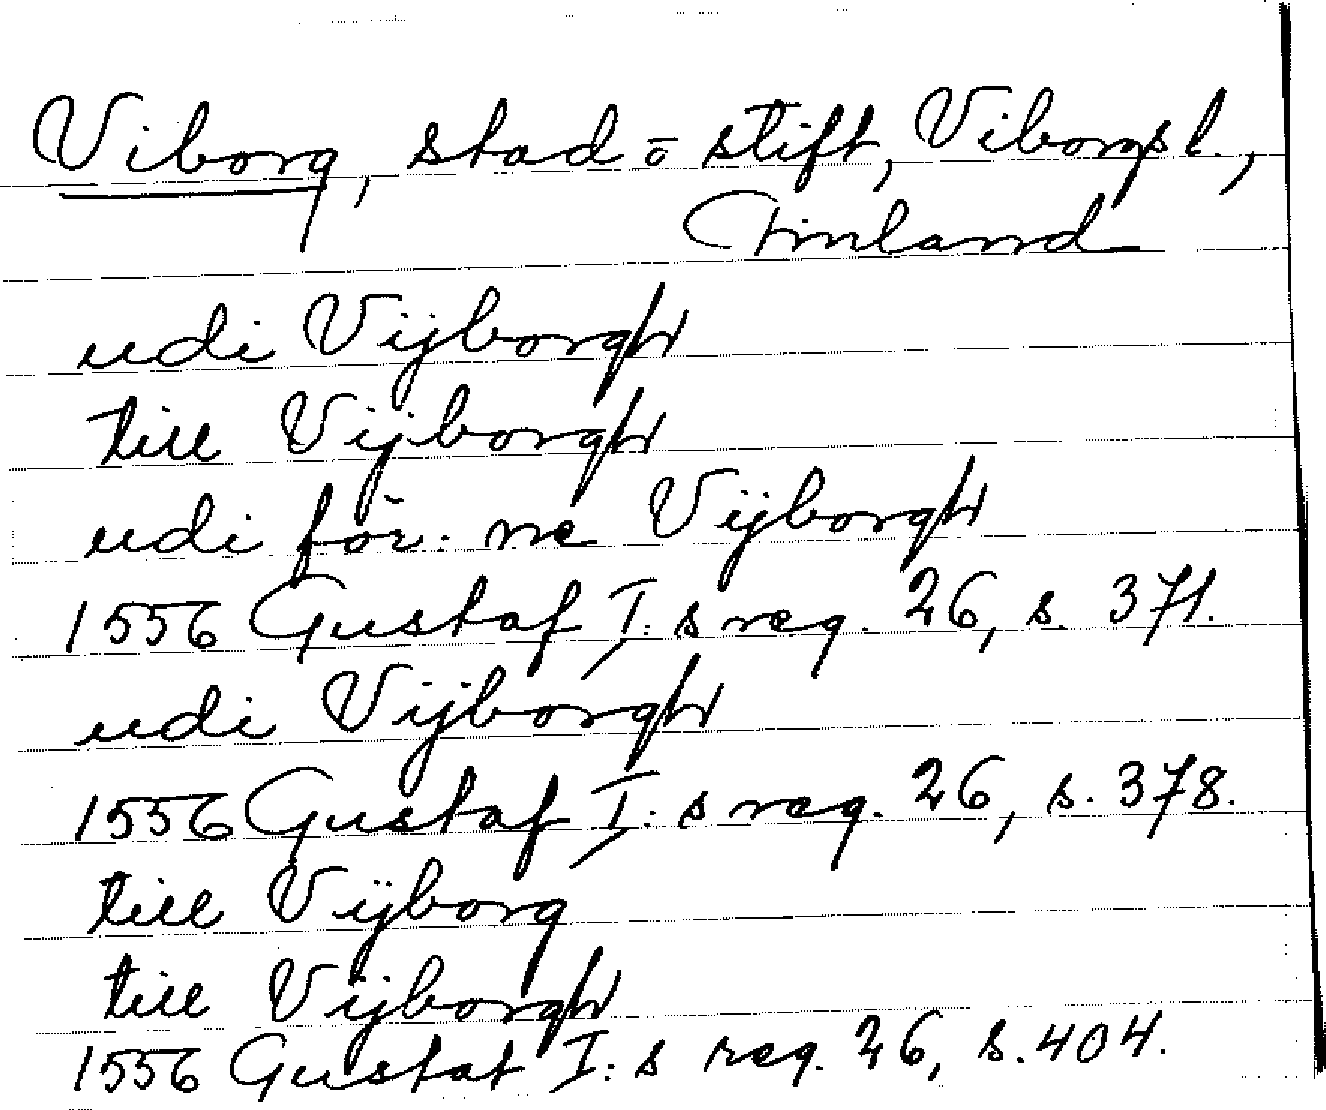 Viborg, stad o stift, Viborgs l.,
Finland
udi Vijborgh
till Vijborgh
udi för: ne Vijborgh
1556 Gustaf I: s reg. 26, s. 371.
udi Vijborgh
1556 Gustaf I: s reg. 26, s. 378.
till Vijborg
till Vijborgh
1556 Gustaf I: s reg. 26, s. 404.